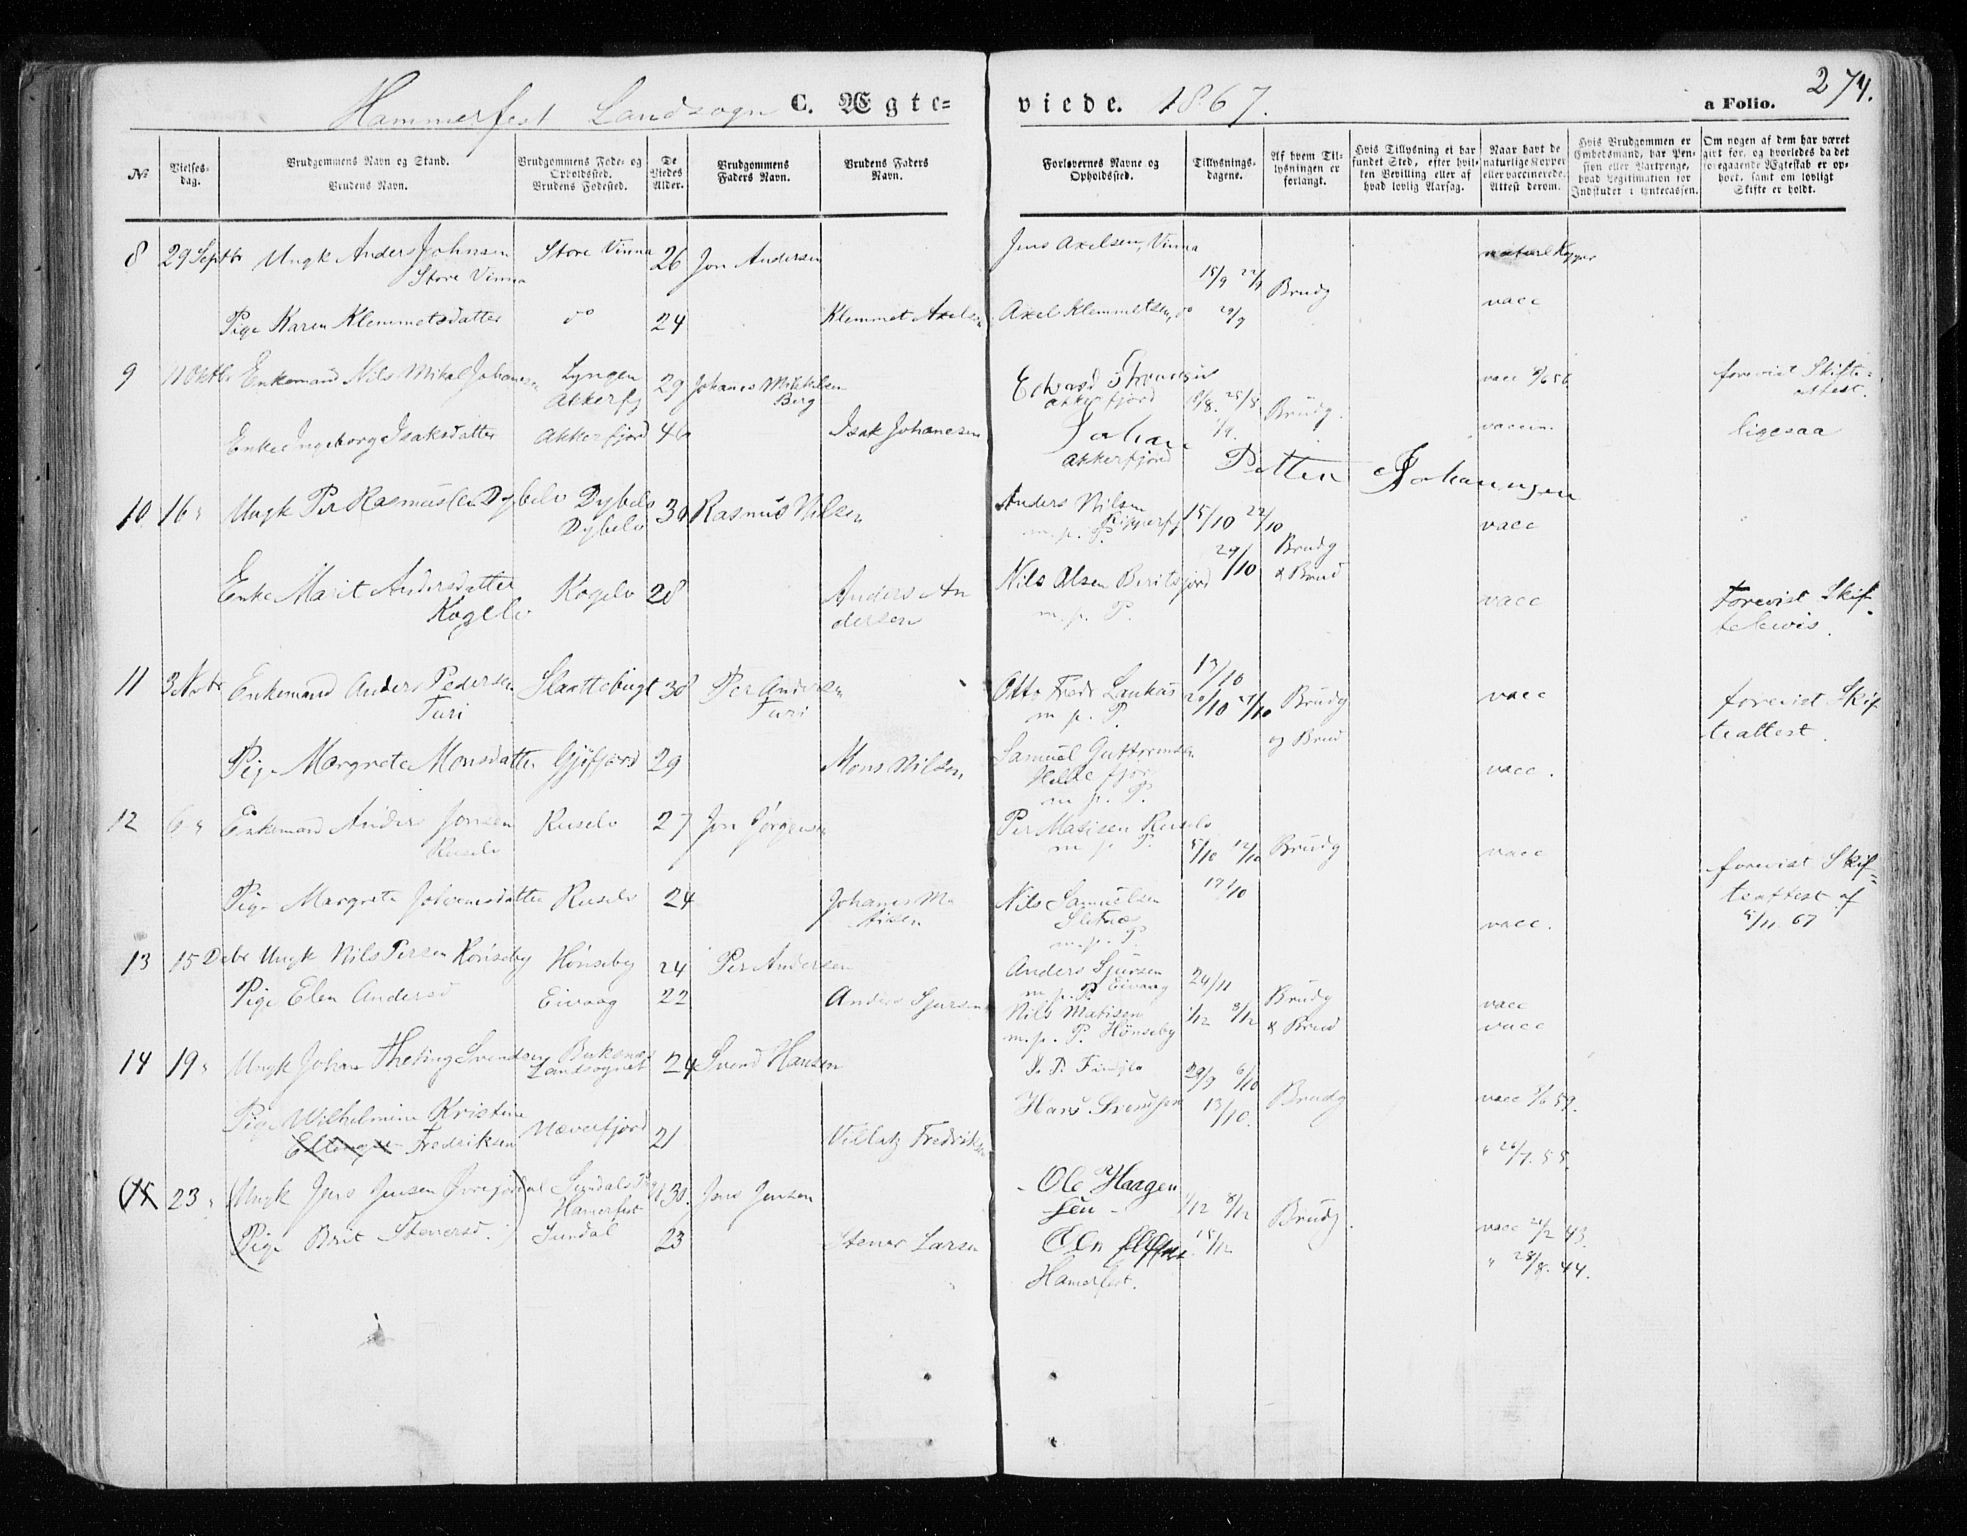 Hammerfest Landsogn C. Ægte= viede. 1867. a Folio. 274.
№
Vielses-
dag.
Brudgommens Navn og Stand.
Brudens Navn.
Brudgommens Føde- og
Opholdssted.
Brudens Fødested.
De
Viedes
Alder.
Brudgommens
Faders Navn.
Brudens Faders
Navn.
Forlovernes Navne og
Opholdssted.
Tillysnings-
dagene.
Af hvem Til-
lysningen er
forlangt.
Hvis Tillysning ei har
fundet Sted, efter hvil-
ken Bevilling eller af
hvad lovlig Aarsag.
Naar havt de
naturlige Kopper
eller vaccinerede.
Attest derom.
Hvis Brudgommen er
Embedsmand, har Pen-
sion eller Vartpenge,
hvad Legitimation for
Indskuder i Enkecassen.
Om nogen af dem har været
gift før, og hvorledes da det
foregaaende Ægteskab er op-
hørt, samt om lovligt
Skifte er holdt.
8 29 Septbr Ungk Anders Johnsen Store Vinna 26 Jon Andersen Jens Axelsen, Vinna naturl Kopper
Store Vinna
15/9 22/9 Brudg
Pige Karen Klemmetsdatter do 24 Klemmet Axelsen Axel Klemmetsen, do 29/9 vacc
9 11 Oktbr Enkemand Nils Mikal Johansen Lyngen 29 Johanes Mikkelsen Edvard vacc forevist Skifte=
Akkerfj Berg Akkerfjord 18/8. 25/8 Brudg. attest.
Enke Ingeborg Isaksdatter Akkerfjord 40 Isak Johanesen Johan 1/9. vaccin. ligesaa
Akkerfjord Petter Johannesen
10 16 " Ungk Per Rasmussen Dybelv Dybelv 30 Rasmus Nilsen Anders Nilsen 15/10 22/10 vacc
Dybelv m. p. P. Brudg
Enke Marit Andersdatter Kogelv 28 Anders An Nils Olsen Beritsfjord 29/10 & Brud vacc Forevist Skif
Kogelv dersen m. p. P. tebevis.
11 3 Novbr Enkemand Anders Pedersen Slaattebugt 38 Per Andersen Otto Fredr Laukas 13/10 20/10 27/10 Brudg vacc forevist Skif
Turi Turi m. p. P. og Brud teattest.
Pige Margrete Monsdatter Gjøfjord 29 Mons Nilsen Samuel Guttormsen vacc.
m. p. P.
12 6 " Enkemand Anders Jonsen Ruselv 27 Jon Jørgensen Per Matisen Ruselv
Ruselv m p P. 5/10 12/10 Brudg vacc forevist Skif=
Pige Margrete Johanesdatter Ruselv 24 Johanes Ma Nils Samuelsen 19/10 teattest af
tisen Sletnæs vacc. 5/11 67
m. p. P.
13 15 Debr Ungk Nils Persen Hønseby Hønseby 24 Per Andersen Anders Sjursen 24/11
m. p. P. Eivaag Brudg
Pige Elen Andersd Eivaag 22 Anders Sjursen Nils Matisen 1/12 8/12 & Brud vacc
m. p. P. Hønseby vacc
14 19 " Ungk Johan Svendsen Buksnæs 24 Svend Hansen 29/9 6/10
Landsognet Hans Svendsen 13/10. Brudg vacc 5/6 59.
Pige Wilhelmine Kristine
Fredriksen Næverfjord 21 Fredriksen " 26/7. 55.
(15 23 " (Ungk Jens Jensen Sundals Pr 30. Jens Jensen Ole Haagen
Hamerfest sen 1/12 8/12 Brudg. vacc 21/2 43.
(Pige Brit Stenersd.) Sundal 23 Stener Larsen Ole 15/12 " 28/8. 44.
Hamerfest.